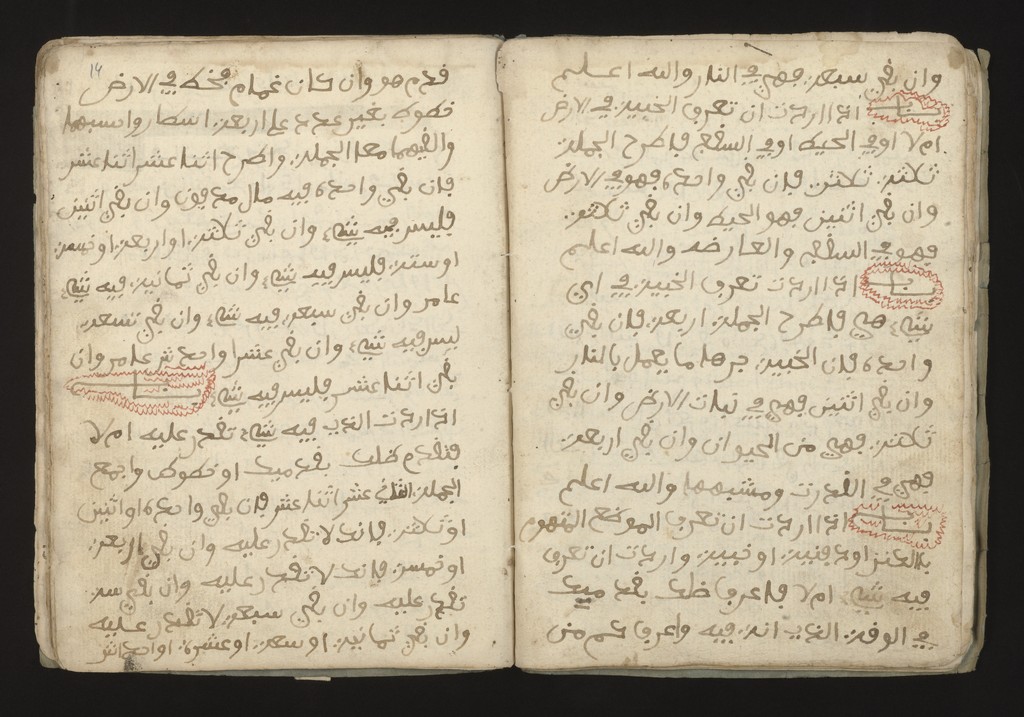 وان بقي سبعة فهي في النار والله اعلم
باب اذا اردت ان تعرف الخبية في الارض
ام لا او في الحيط او في السقف فاطرح الجملة
ثلاثة ثلاثة فان بقي واحدة فهو في الارض
وان بقي اثنين فهو الحيط وان بقي ثلاثة
فهو في السطح والعارضه والله اعلم
باب اذا اردت تعرف الخبية في اي
شيء هي فاطرح الجملة اربعة فان بقي
واحدة فان الخبية جرها ما يعمل بالنار
وان بقي اثنين فهي في نبات الارض وان بقي
ثلاثة فهي من الحيوان وان بقي اربعة
فهي في القدرت ومشبهها والله اعلم
باب اذا اردت ان تعرف الموضع المتهوم
بالكنز او دفنية او خبية واردت ان تعرف
فيه شيء ام لا فاعرف ظلك بقدميك
في الوقت الذي انت فيه واعرف كم من
14
قدم هو وان كان غمام فخط في الارض
خطوط بغير عدد على اربعة اسطار واسبهما
والقيهما مع الجملة واطرح اثنا عشر اثنا عشر
فان بقي واحدة فيه مال مدفون وان بقي اثنين
فليس فيه شيء وان بقي ثلاثة او اربعة او خمسة
او ستة فليس فيه شيء وان بقي ثمانية فيه شيء
عامر وان بقي سبعة فيه شيء وان بقي تسعة
ليس فيه شيء وان بقي عشرا واحد عشر عامر وان
بقي اثنا عشر فليس فيه شيء باب
اذا اردت الذي فيه شيء تقدر عليه ام لا
فتقدم ظلك بقدميك او خطوط واجمع
الجملة اثنا عشر اثنا عشر فان بقي واحدة او اثنين
او ثلاثة فانك لا تقدر عليه وان بقي اربعة
او خمسة فانك لا تقدر عليه وان بقي ستة
تقدر عليه وان بقي سبعة لا تقدر عليه
وان بقي ثمانية او تسعة او عشرة او احد عشر